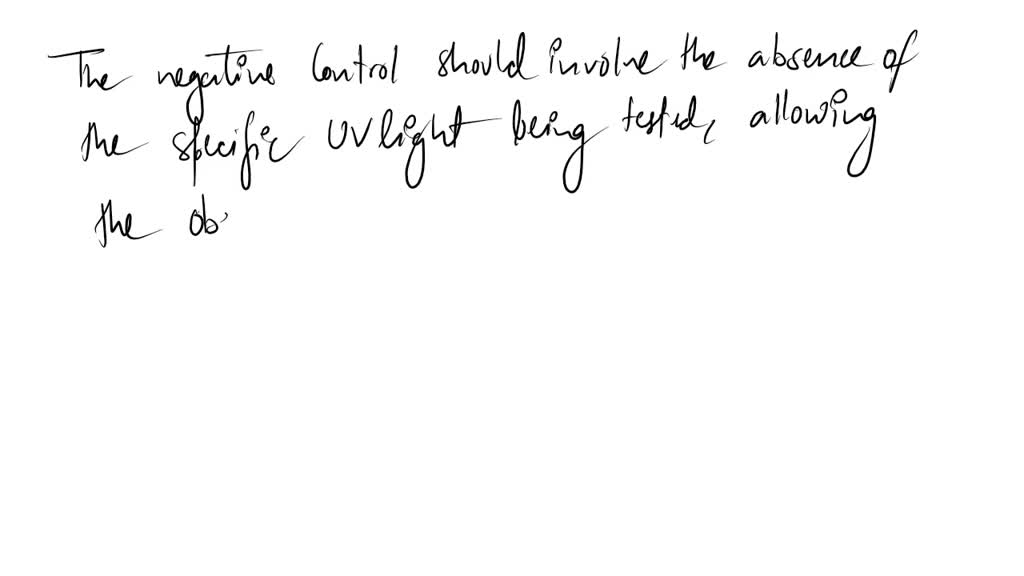 The negative control should involve the absence of
the specific UV light being tested, allowing
the ob